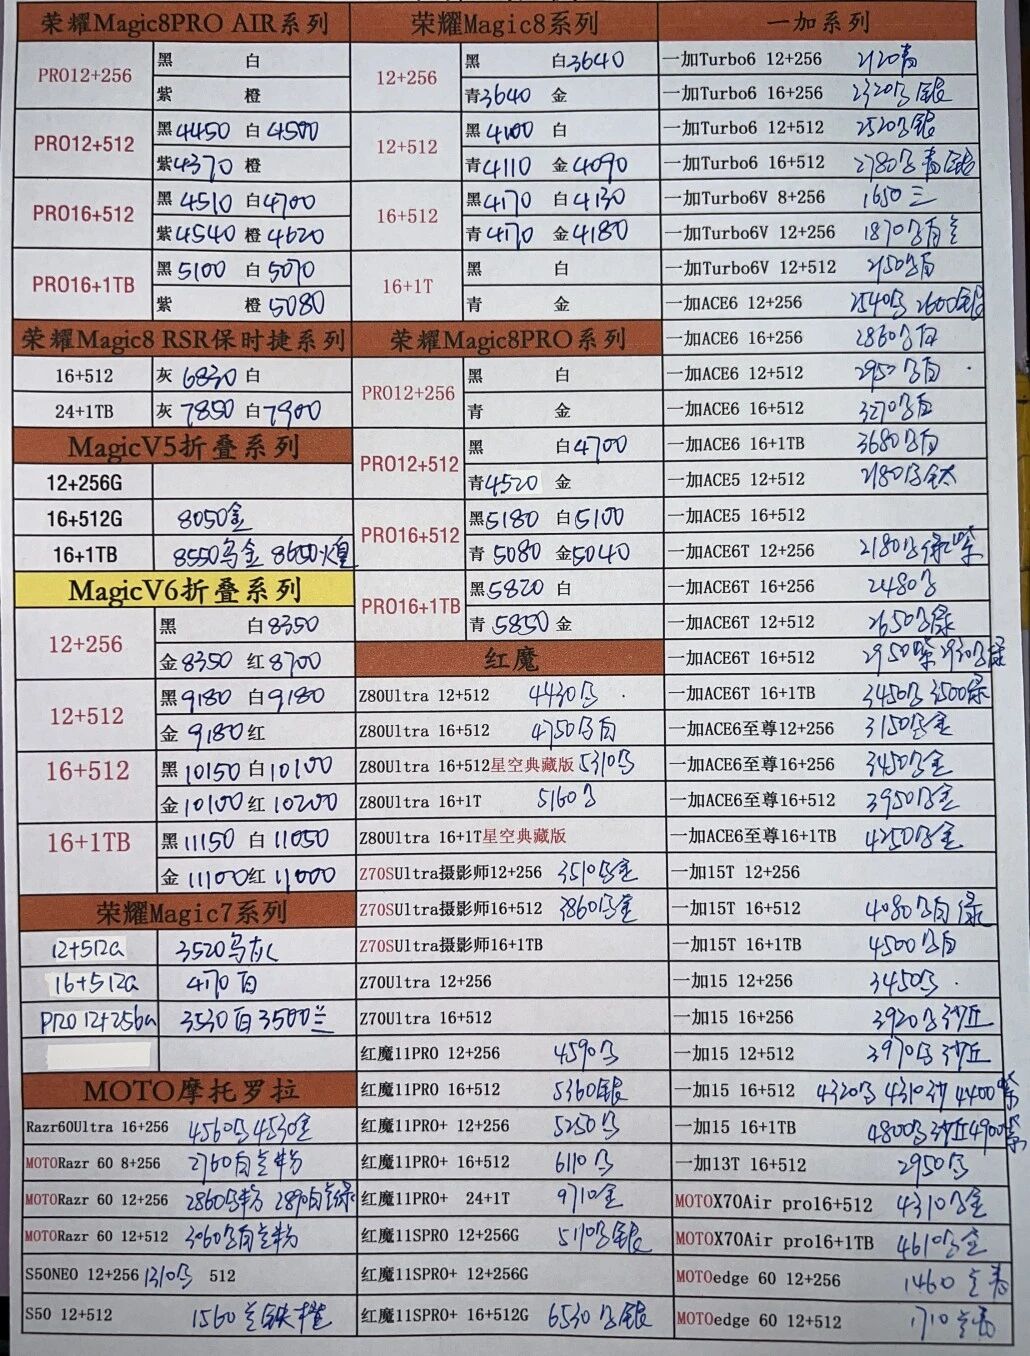 荣耀Magic8PRO AIR系列
PRO12+256 黑 白
紫 橙
PRO12+512 黑4450 白4500
紫4370 橙
PRO16+512 黑4510 白4700
紫4540 橙4620
PRO16+1TB 黑5100 白5070
紫 橙5080
荣耀Magic8 RSR保时捷系列
16+512 灰6830 白
24+1TB 灰7850 白7900
MagicV5折叠系列
12+256G
16+512G 8050金
16+1TB 8550乌金 8650
MagicV6折叠系列
12+256 黑 白8350
金8350 红8700
12+512 黑9180 白9180
金9180 红
16+512 黑10150 白10100
金10100 红10200
16+1TB 黑11150 白11050
金11100 红11000
荣耀Magic7系列
12+512G 3520乌灰
16+512G 4170白
PRO 12+256G 3530白 3500兰
MOTO摩托罗拉
Razr60Ultra 16+256 4560乌 4530金
MOTORazr 60 8+256 2760白兰粉
MOTORazr 60 12+256 2860乌粉 2890白兰绿
MOTORazr 60 12+512 3060乌白兰粉
S50NEO 12+256 1310乌 512
S50 12+512 1560兰铁橙
荣耀Magic8系列
12+256 黑 白3640
青3640 金
12+512 黑4100 白
青4110 金4090
16+512 黑4170 白4130
青4170 金4180
16+1T 黑 白
青 金
荣耀Magic8PRO系列
PRO12+256 黑 白
青 金
PRO12+512 黑 白4700
青4520 金
PRO16+512 黑5180 白5100
青5080 金5040
PRO16+1TB 黑5820 白
青5850 金
红魔
Z80Ultra 12+512 4430乌
Z80Ultra 16+512 4750乌白
Z80Ultra 16+512星空典藏版 5310乌
Z80Ultra 16+1T 5160乌
Z80Ultra 16+1T星空典藏版
Z70SUltra摄影师12+256 3510乌金
Z70SUltra摄影师16+512 3860乌金
Z70SUltra摄影师16+1TB
Z70Ultra 12+256
Z70Ultra 16+512
红魔11PRO 12+256 4590乌
红魔11PRO 16+512 5360银
红魔11PRO+ 12+256 5250乌
红魔11PRO+ 16+512 6110乌
红魔11PRO+ 24+1T 9710金
红魔11SPRO 12+256G 5110乌银
红魔11SPRO+ 12+256G
红魔11SPRO+ 16+512G 6530乌银
一加系列
一加Turbo6 12+256 2120青
一加Turbo6 16+256 2320乌银
一加Turbo6 12+512 2520乌银
一加Turbo6 16+512 2780乌青银
一加Turbo6V 8+256 1650兰
一加Turbo6V 12+256 1870乌白兰
一加Turbo6V 12+512 2150乌白
一加ACE6 12+256 2540乌 2600银
一加ACE6 16+256 2860乌白
一加ACE6 12+512 2950乌白
一加ACE6 16+512 3270乌白
一加ACE6 16+1TB 3680乌白
一加ACE5 12+512 2180乌钛
一加ACE5 16+512
一加ACE6T 12+256 2180乌绿紫
一加ACE6T 16+256 2480乌
一加ACE6T 12+512 2650乌绿
一加ACE6T 16+512 2950紫 2930乌绿
一加ACE6T 16+1TB 3450乌 3500绿
一加ACE6至尊12+256 3150乌金
一加ACE6至尊16+256 3450乌金
一加ACE6至尊16+512 3950乌金
一加ACE6至尊16+1TB 4250乌金
一加15T 12+256
一加15T 16+512 4080乌白绿
一加15T 16+1TB 4500乌白
一加15 12+256 3450乌
一加15 16+256 3920乌沙丘
一加15 12+512 3970乌沙丘
一加15 16+512 4320乌 4310沙 4400紫
一加15 16+1TB 4800乌沙丘 4900紫
一加13T 16+512 2950乌
MOTOX70Air pro16+512 4310乌金
MOTOX70Air pro16+1TB 4610乌金
MOTOedge 60 12+256 1460兰青
MOTOedge 60 12+512 1710兰青